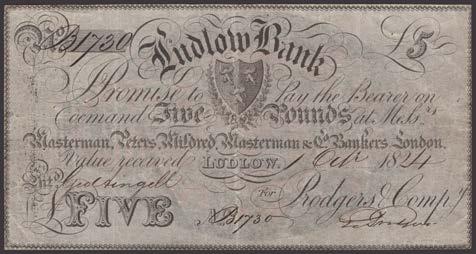 No B1730 Ludlow Bank £5
Promise to Pay the Bearer on
Demand Five Pounds at Messrs
Masterman, Peters, Mildred, Masterman & Co. Bankers London.
Value received LUDLOW. 1 Octr 1824
Entd
For Rodgers & Compy
£FIVE No B1730